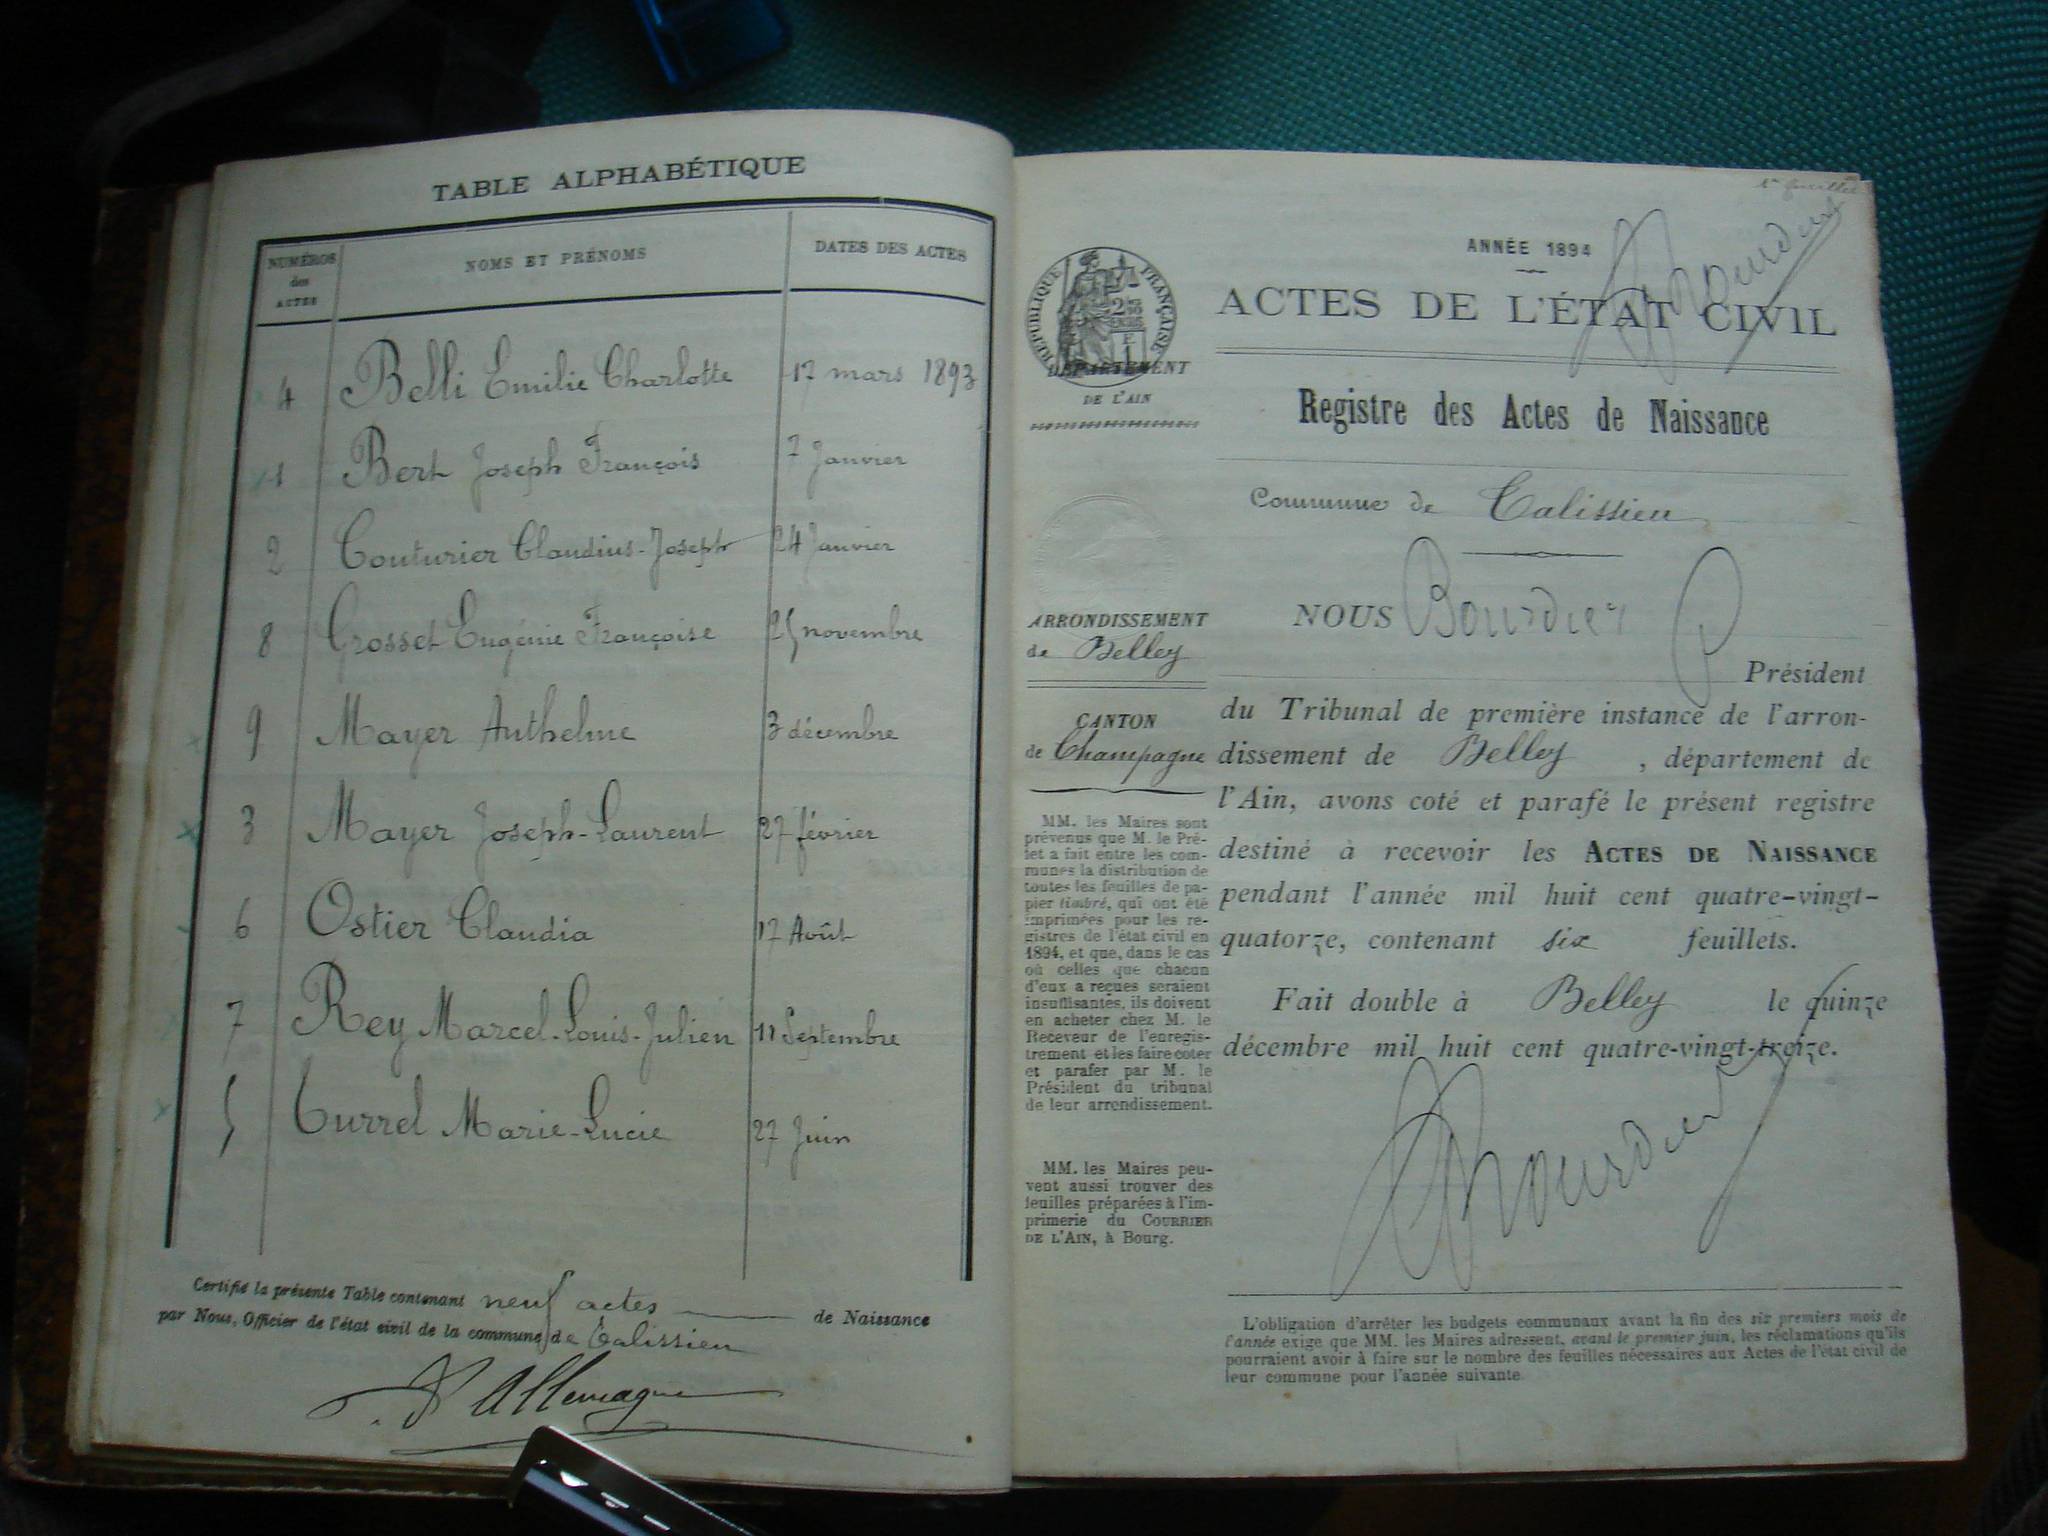 TABLE ALPHABÉTIQUE
NUMÉROS des ACTES
NOMS ET PRÉNOMS
DATES DES ACTES
4 Belli Emilie Charlotte 17 mars 1893
1 Bert Joseph François 7 Janvier
2 Couturier Claudius-Joseph 24 Janvier
8 Grosset Eugénie Françoise 25 novembre
9 Mayer Anthelme 3 décembre
3 Mayer Joseph-Laurent 27 février
6 Ostier Claudia 17 Août
7 Rey Marcel-Louis-Julien 11 Septembre
5 Turrel Marie-Lucie 27 Juin
Certifié la présente Table contenant neuf actes de Naissance
par Nous, Officier de l'état civil de la commune de Talissieu
Allemagne
1er feuillet
Bourdier
ANNÉE 1894
ACTES DE L'ÉTAT CIVIL
RÉPUBLIQUE FRANÇAISE
DÉPARTEMENT
DE L'AIN
Registre des Actes de Naissance
Commune de Talissieu
ARRONDISSEMENT
de Belley
CANTON
de Champagne
MM. les Maires sont
prévenus que M. le Pré-
fet a fait entre les com-
munes la distribution de
toutes les feuilles de pa-
pier timbré, qui ont été
imprimées pour les re-
gistres de l'état civil en
1894, et que, dans le cas
où celles que chacun
d'eux a reçues seraient
insuffisantes, ils doivent
en acheter chez M. le
Receveur de l'enregis-
trement et les faire coter
et parafer par M. le
Président du tribunal
de leur arrondissement.
MM. les Maires peu-
vent aussi trouver des
feuilles préparées à l'im-
primerie du COURRIER
DE L'AIN, à Bourg.
NOUS Bourdier
Président
du Tribunal de première instance de l'arron-
dissement de Belley , département de
l'Ain, avons coté et parafé le présent registre
destiné à recevoir les ACTES DE NAISSANCE
pendant l'année mil huit cent quatre-vingt-
quatorze, contenant six feuillets.
Fait double à Belley le quinze
décembre mil huit cent quatre-vingt-treize.
Bourdier
L'obligation d'arrêter les budgets communaux avant la fin des six premiers mois de
l'année exige que MM. les Maires adressent, avant le premier juin, les réclamations qu'ils
pourraient avoir à faire sur le nombre des feuilles nécessaires aux Actes de l'état civil de
leur commune pour l'année suivante.